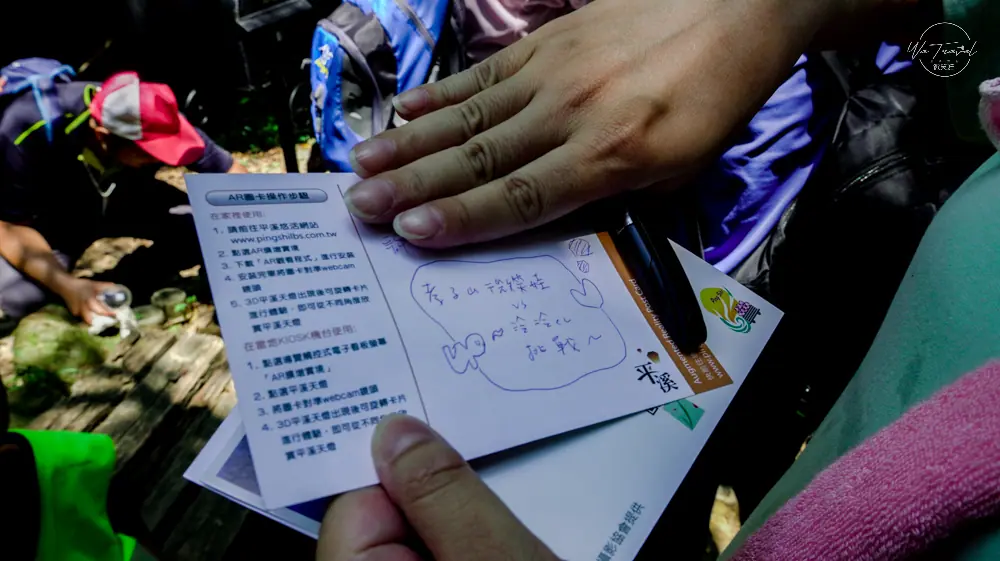 AR圖卡操作步驟
在家裡使用:
1. 請前往平溪悠活網站
www.pingshilbs.com.tw
2. 點選AR擴增實境
3. 下載「AR觀看程式」進行安裝
4. 安裝完畢將圖卡對準webcam
鏡頭
5. 3D平溪天燈出現後可旋轉卡片
進行體驗,即可從不同角度欣
賞平溪天燈
在當地KIOSK機台使用:
1. 點選導覽觸控式電子看板螢幕
「AR擴增實境」
2. 點選平溪天燈
3. 將圖卡對準webcam鏡頭
4. 3D平溪天燈出現後可旋轉卡片
進行體驗,即可從不同
賞平溪天燈
孝子山
vs
冷冷化
挑戰~
Augmented Reality Post Card
平溪
攝影協會提供
Wa Travel